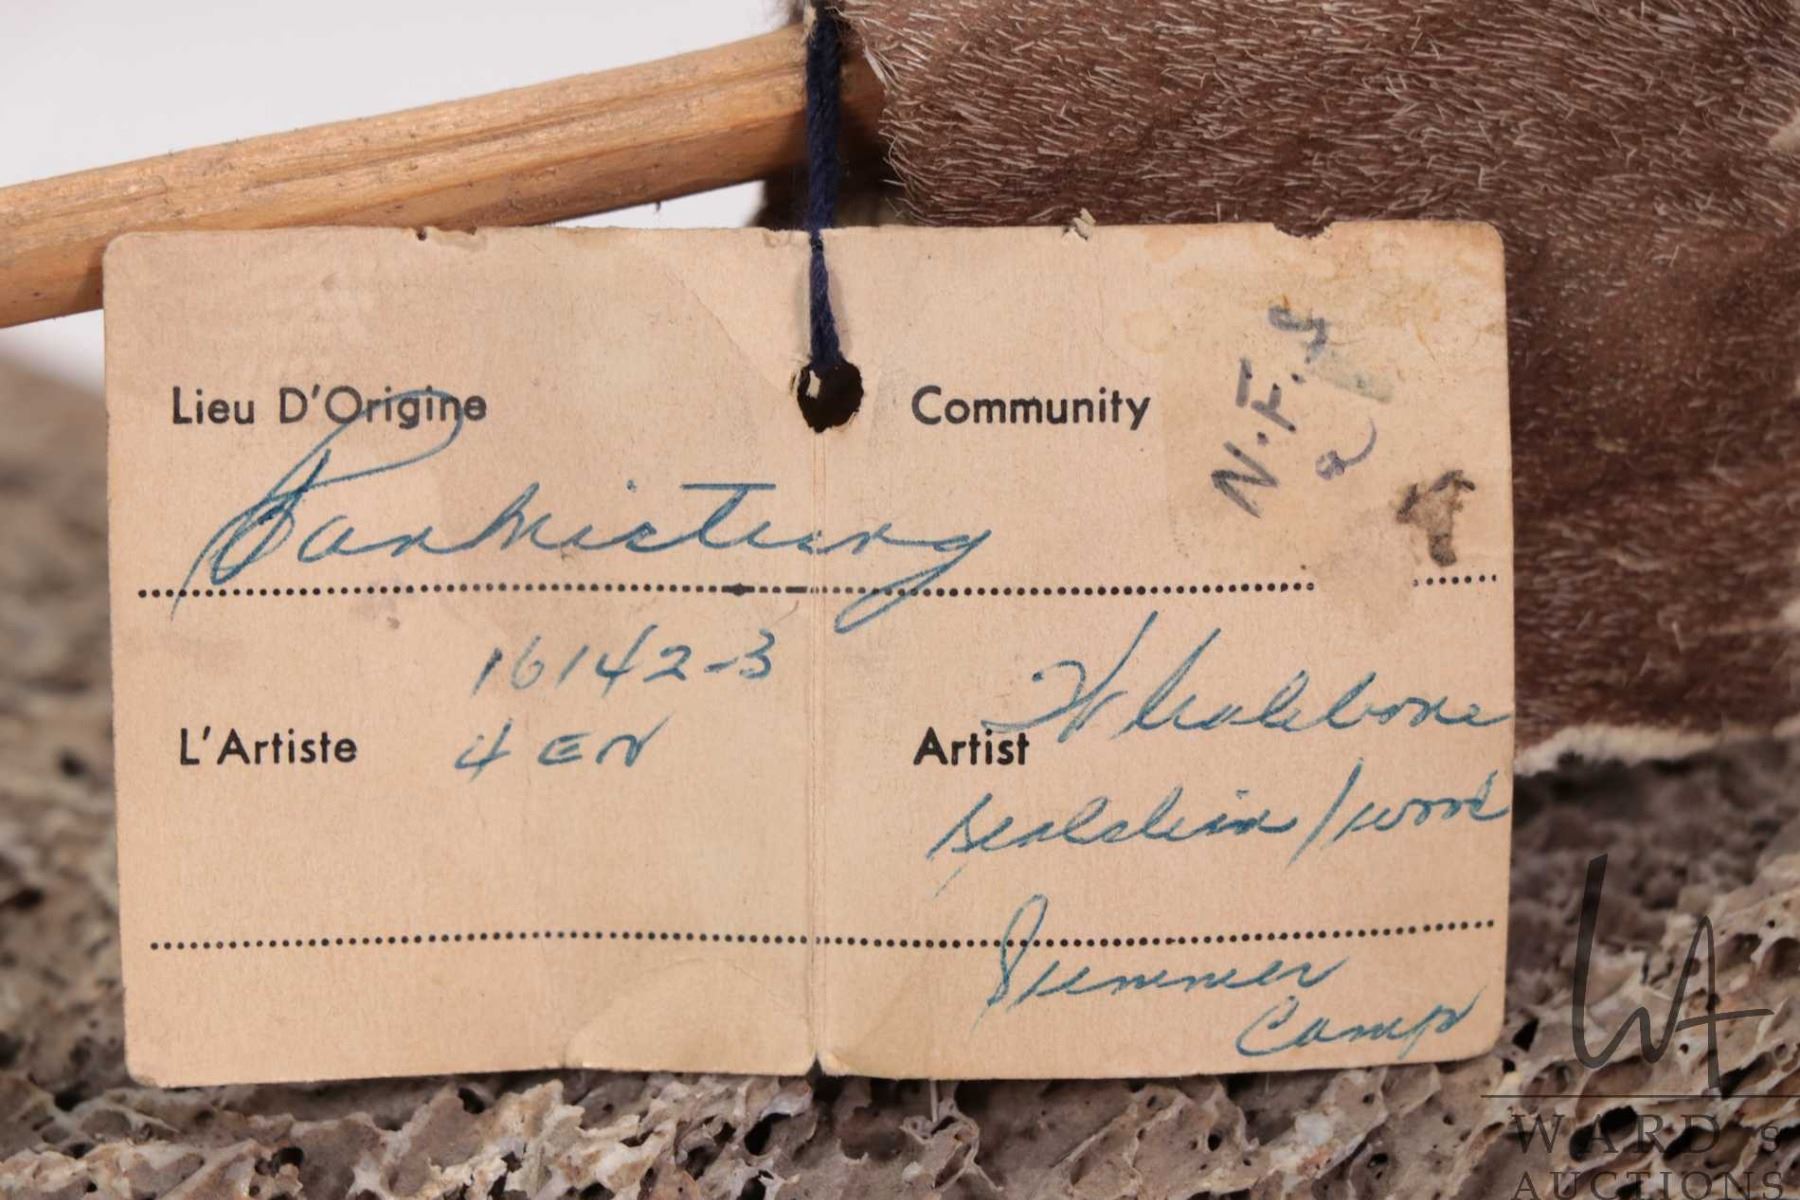 Lieu D'Origine
Community
N.F.S
Panhictung
16142-3
L'Artiste
4 EN
Artist
Whalebone
sealskin/wood
Summer
Camp
WARD's
AUCTIONS